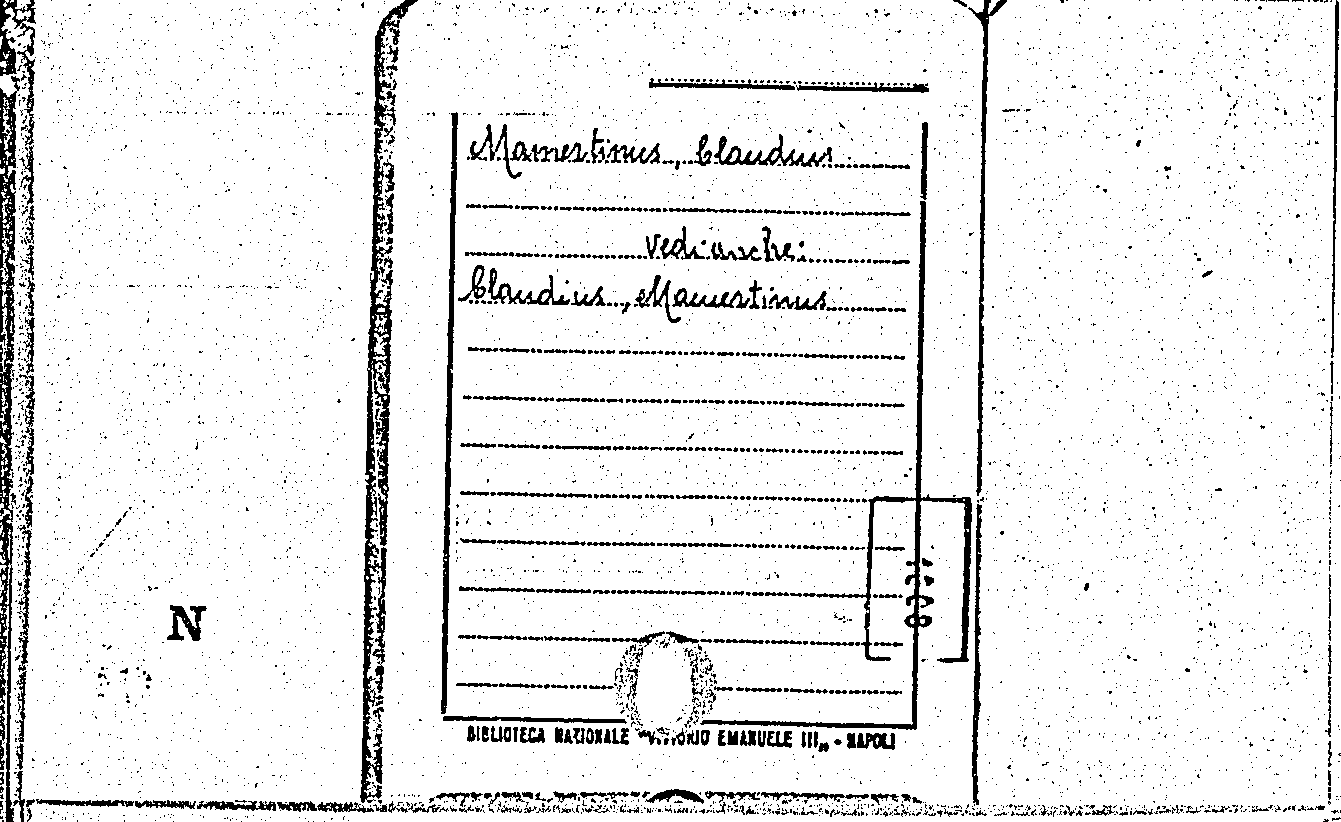 Mamertinus, Claudius
vedi anche:
Claudius, Mamertinus
N
BIBLIOTECA NAZIONALE "VITTORIO EMANUELE III„ - NAPOLI